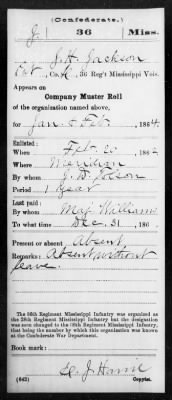 (Confederate.)
J 36 Miss.
J. H. Jackson
Pvt, Co. 36 Reg't Mississippi Vols.
Appears on
Company Muster Roll
of the organization named above,
for Jan & Feb, 1864.
Enlisted:
When Feb. 20, 186
Where Meridian
By whom J. B.
Period 1 year
Last paid:
By whom Maj Williams
To what time Dec. 31, 186
Present or absent Absent
Remarks: Absent without
leave.
The 36th Regiment Mississippi Infantry was organized as
the 38th Regiment Mississippi Infantry but the designation
was soon changed to the 36th Regiment Mississippi Infantry,
that being the number by which this organization was known
at the Confederate War Department.
Book mark:
J Harris
(642) Copyist.